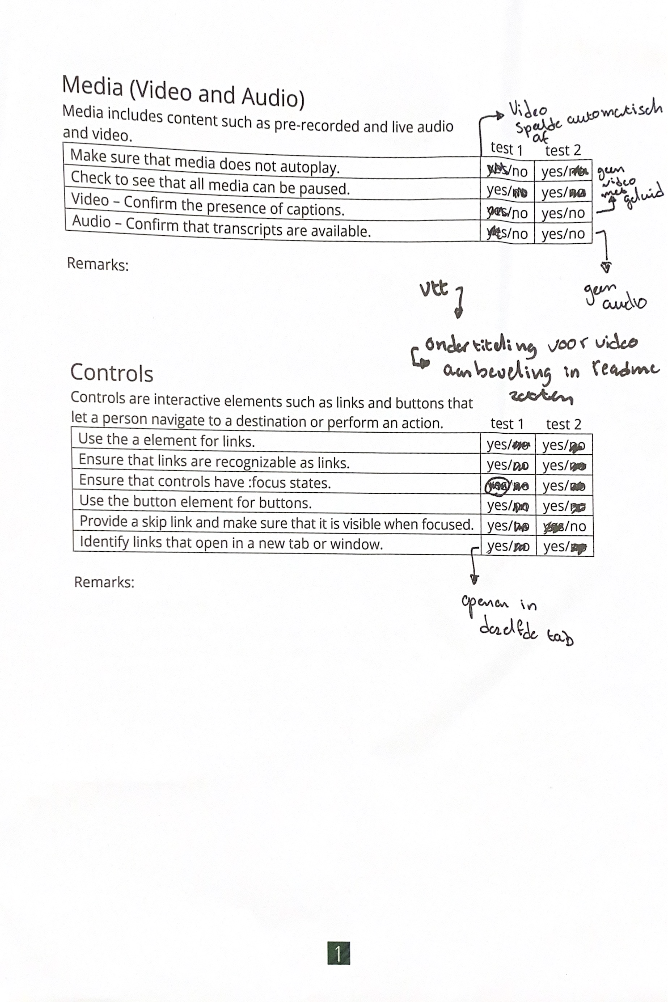 Media (Video and Audio)
Media includes content such as pre-recorded and live audio
and video.
Video
speelde automatisch
af
test 1 test 2
Make sure that media does not autoplay. yes/no yes/no
geen
video
met
geluid
Check to see that all media can be paused. yes/no yes/no
Video – Confirm the presence of captions. yes/no yes/no
Audio – Confirm that transcripts are available. yes/no yes/no
Remarks:
geen
audio
vtt
ondertiteling voor video
aanbeveling in readme
zetten
Controls
Controls are interactive elements such as links and buttons that
let a person navigate to a destination or perform an action.
test 1 test 2
Use the a element for links. yes/no yes/no
Ensure that links are recognizable as links. yes/no yes/no
Ensure that controls have :focus states. yes/no yes/no
Use the button element for buttons. yes/no yes/no
Provide a skip link and make sure that it is visible when focused. yes/no yes/no
Identify links that open in a new tab or window. yes/no yes/no
Remarks:
openen in
dezelfde tab
1